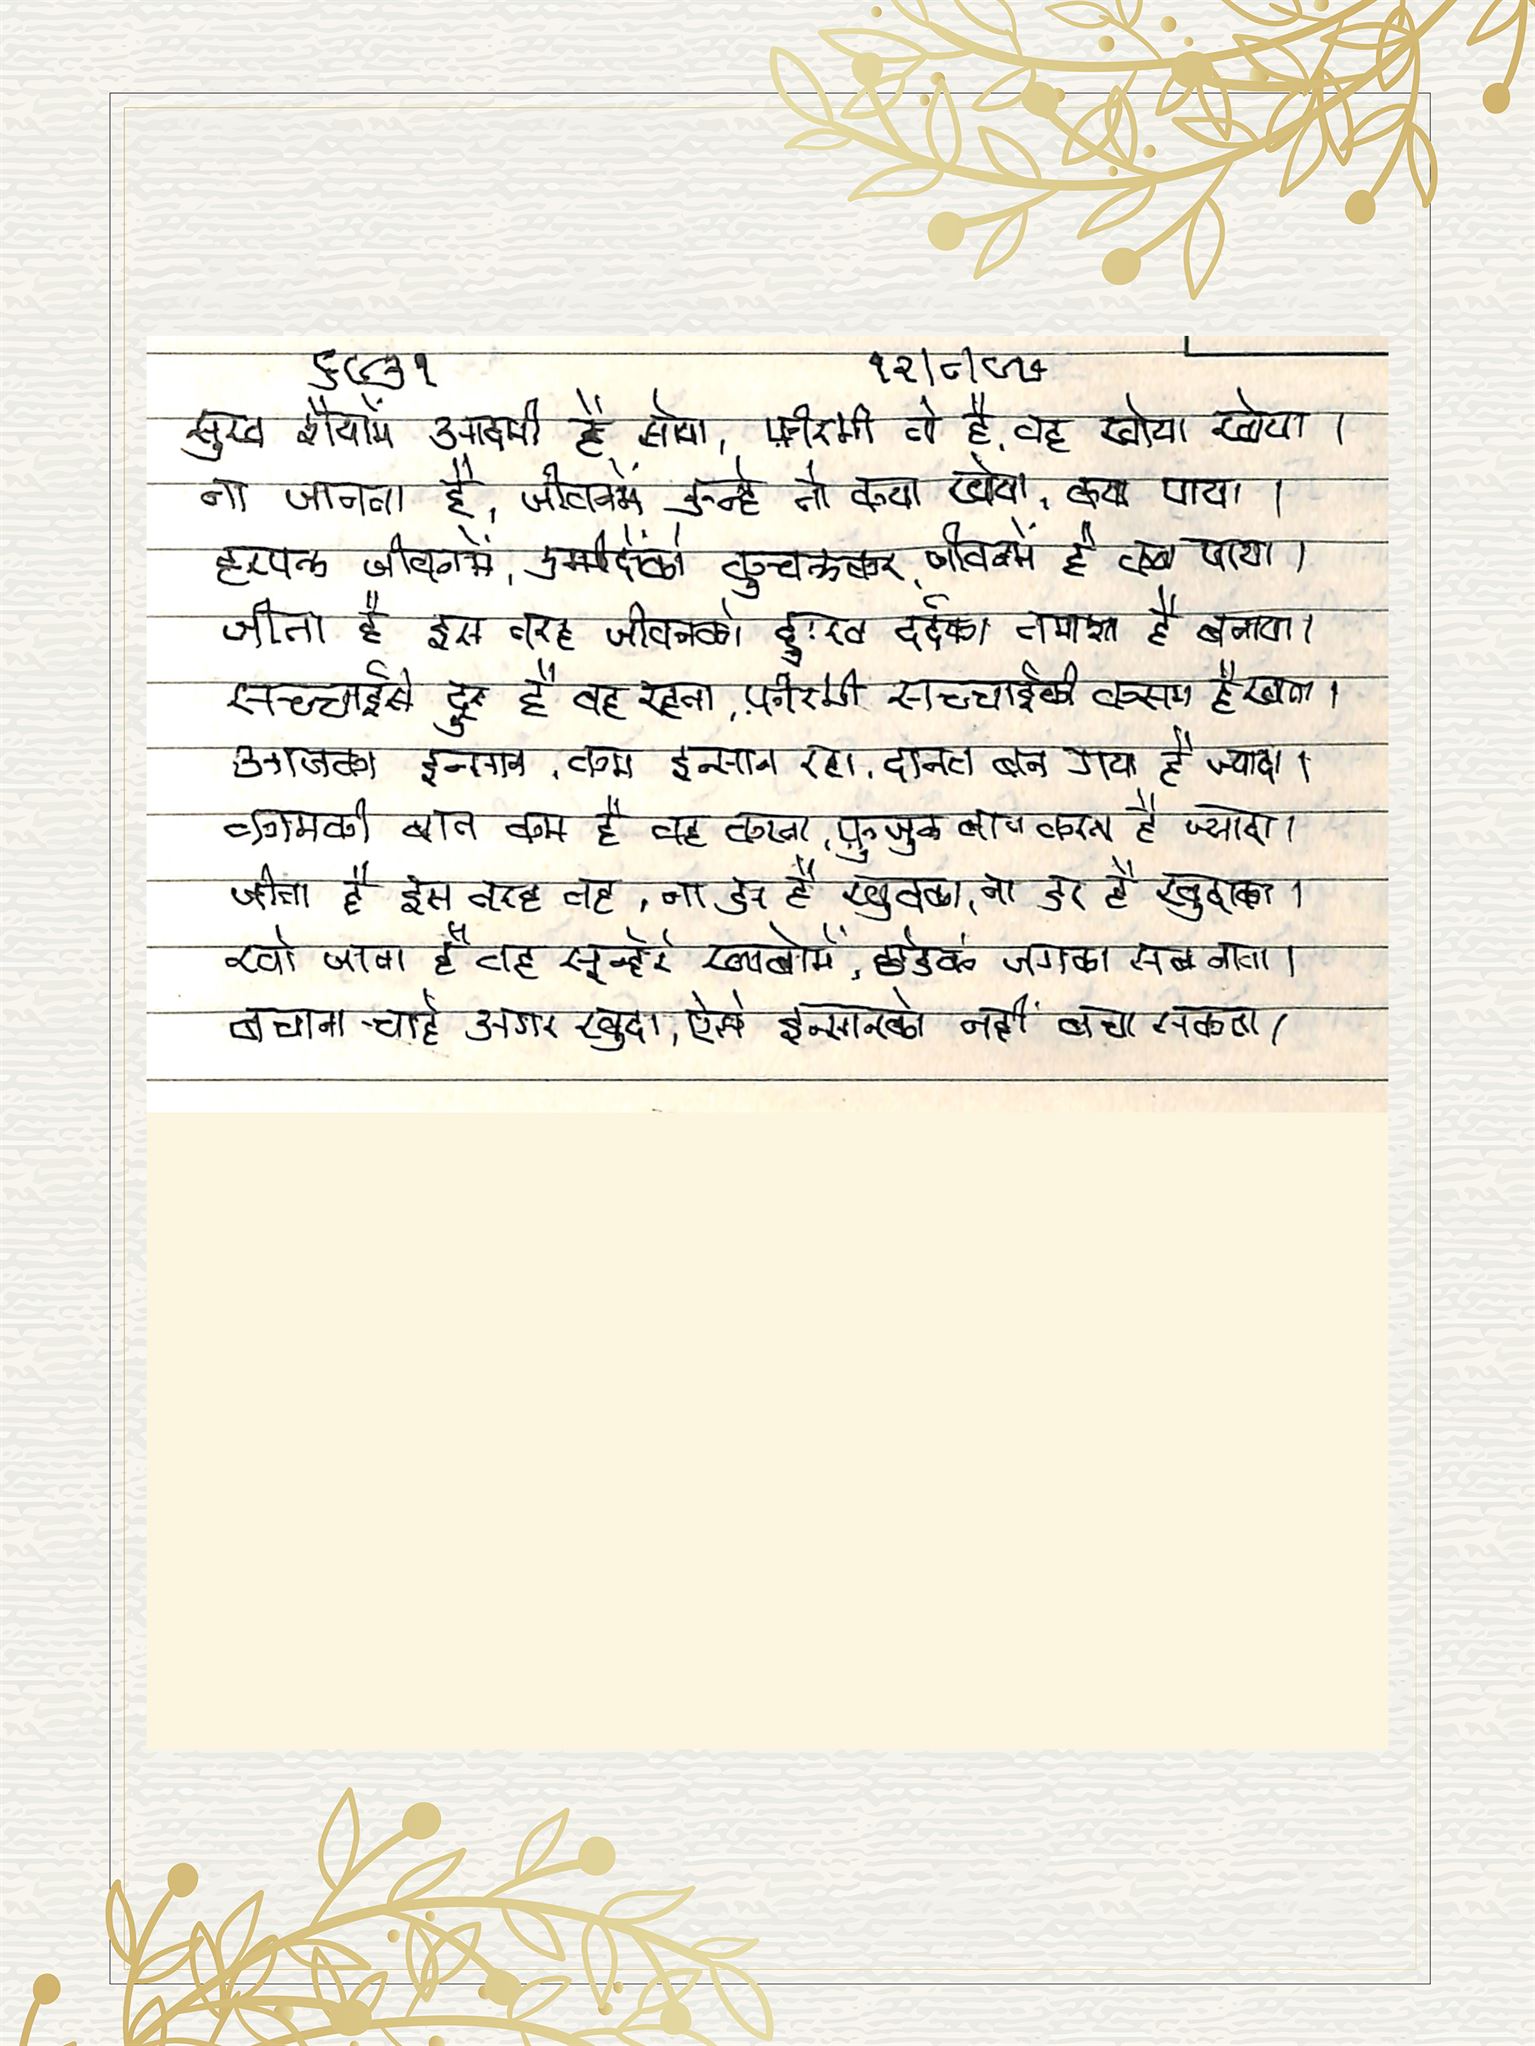 १२/८/८५
सुख शैयामें आदमी है सोया, फ़ीरभी तो है, वह खोया खोया ।
ना जानता है, जीवनमें उन्हें तो क्या खोया, क्या पाया ।
हरपल जीवनमें, उम्मीदोंको कुचलकर, जीवनमें है क्या पाया ।
जीता है इस तरह जीवनको दुःख दर्दका तमाशा है बनाया।
सच्चाईसे दूर है वह रहता, फ़ीरभी सच्चाईकी कसम है खाता ।
आजका इन्सान, कम इन्सान रहा, दानव बन गया है ज्यादा ।
कामकी बात कम है वह करता, फ़ुजुल बात करता है ज्यादा।
जीता है इस तरह वह, ना डर है खुदका, ना डर है खुदाका ।
खो जाता है वह सून्हेरे ख्वाबोमें, छोडके जगका सब नाता।
बचाना चाहे अगर खुदा, ऐसे इन्सानको नहीं बचा सकता।